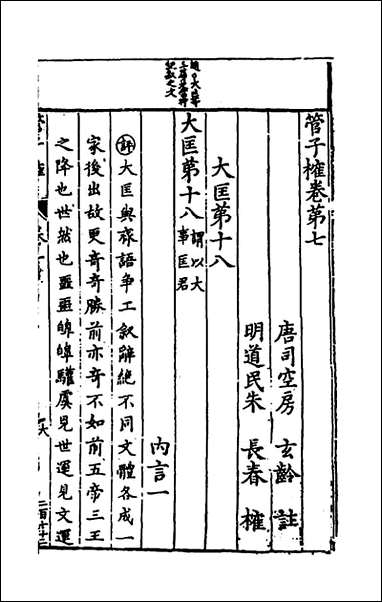 管子榷卷第七
唐司空房 玄齡 註
明道民朱 長春 榷
大匡第十八
內言一
大匡第十八 謂以大事匡君
評 大匡與齊語爭工叙辭絕不同文體各成一
家後出故更奇奇勝前亦奇不如前五帝三王
之降也世然也噩噩皞皞驩虞見世運見文運